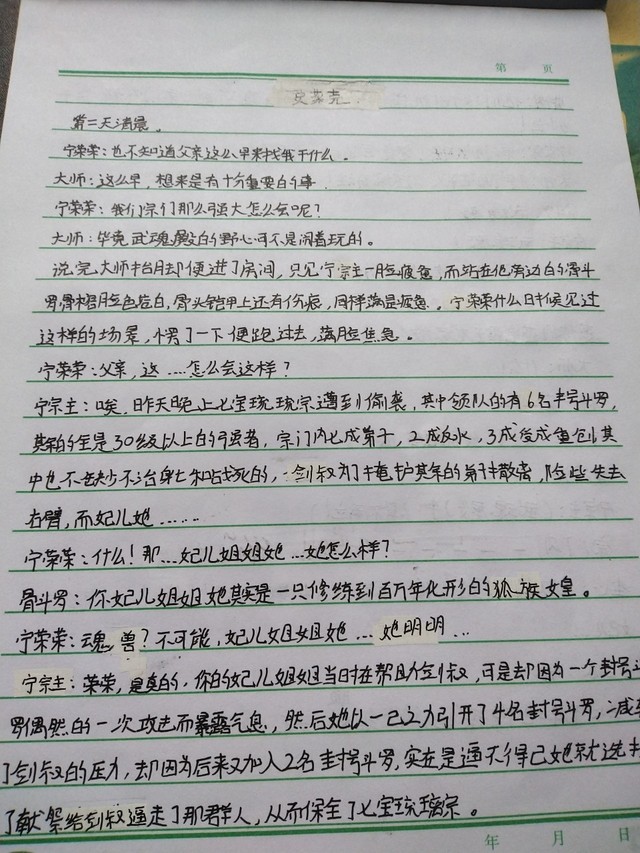 第 页
史莱克
第二天清晨。
宁荣荣：也不知道父亲这么早来找我干什么。
大师：这么早，想来是有十分重要的事
宁荣荣：我们宗门那么强大怎么会呢？
大师：毕竟武魂殿的野心可不是闹着玩的。
说完大师抬脚便进了房间，只见宁宗主一脸疲惫，而站在他旁边的骨斗
罗骨榕脸色苍白，骨头铠甲上还有伤痕，同样满是疲惫。宁荣荣什么时候见过
这样的场景，愣了一下便跑过去，满脸焦急。
宁荣荣：父亲，这……怎么会这样？
宁宗主：唉，昨天晚上七宝琉琉宗遭到偷袭，其中领队的有6名封号斗罗，
其余的全是30级以上的强者，宗门内七成弟子，2成反水，3成受成重创，其
中也不缺少不治身亡和战死的，剑叔为了掩护其余的弟子散离，险些失去
右臂，而妃儿她……
宁荣荣：什么！那…妃儿姐姐她…她怎么样？
骨斗罗：你妃儿姐姐她其实是一只修炼到百万年化形的狐族女皇。
宁荣荣：魂兽？不可能，妃儿姐姐她…她明明…
宁宗主：荣荣，是真的，你的妃儿姐姐当时在帮助剑叔，可是却因为一个封号斗
罗偶然的一次攻击而暴露气息，然后她以一己之力引开了4名封号斗罗，减轻
了剑叔的压力，却因为后来又加入2名封号斗罗，实在是逼不得已她就选择
了献祭给剑叔逼走了那群人，从而保全了七宝琉璃宗。
年 月 日